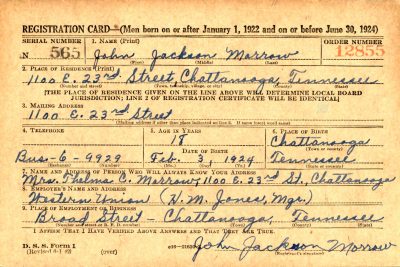 REGISTRATION CARD—(Men born on or after January 1, 1922 and on or before June 30, 1924)
SERIAL NUMBER 1. NAME (Print) ORDER NUMBER
N 565 John Jackson Morrow 12855
(First) (Middle) (Last)
2. PLACE OF RESIDENCE (Print)
1100 E. 23rd Street, Chattanooga, Tennessee
(Number and street) (Town, township, village, or city) (County) (State)
[THE PLACE OF RESIDENCE GIVEN ON THE LINE ABOVE WILL DETERMINE LOCAL BOARD
JURISDICTION; LINE 2 OF REGISTRATION CERTIFICATE WILL BE IDENTICAL]
3. MAILING ADDRESS
1100 E. 23rd Street
[Mailing address if other than place indicated on line 2. If same insert word same]
4. TELEPHONE 5. AGE IN YEARS 6. PLACE OF BIRTH
18 Chattanooga
DATE OF BIRTH (Town or county)
Bus-6-9929 Feb. 3, 1924 Tennessee
(Exchange) (Number) (Mo.) (Day) (Yr.) (State or country)
7. NAME AND ADDRESS OF PERSON WHO WILL ALWAYS KNOW YOUR ADDRESS
Mrs. Thelma C. Morrow, 1100 E. 23rd St., Chattanooga
8. EMPLOYER'S NAME AND ADDRESS
Western Union (W. M. Jones, Mgr.)
9. PLACE OF EMPLOYMENT OR BUSINESS
Broad Street - Chattanooga, Tennessee
(Number and street or R. F. D. number) (Town) (County) (State)
I AFFIRM THAT I HAVE VERIFIED ABOVE ANSWERS AND THAT THEY ARE TRUE.
D. S. S. Form 1
(Revised 6-1-42) (over) John Jackson Morrow
(Registrant's signature)